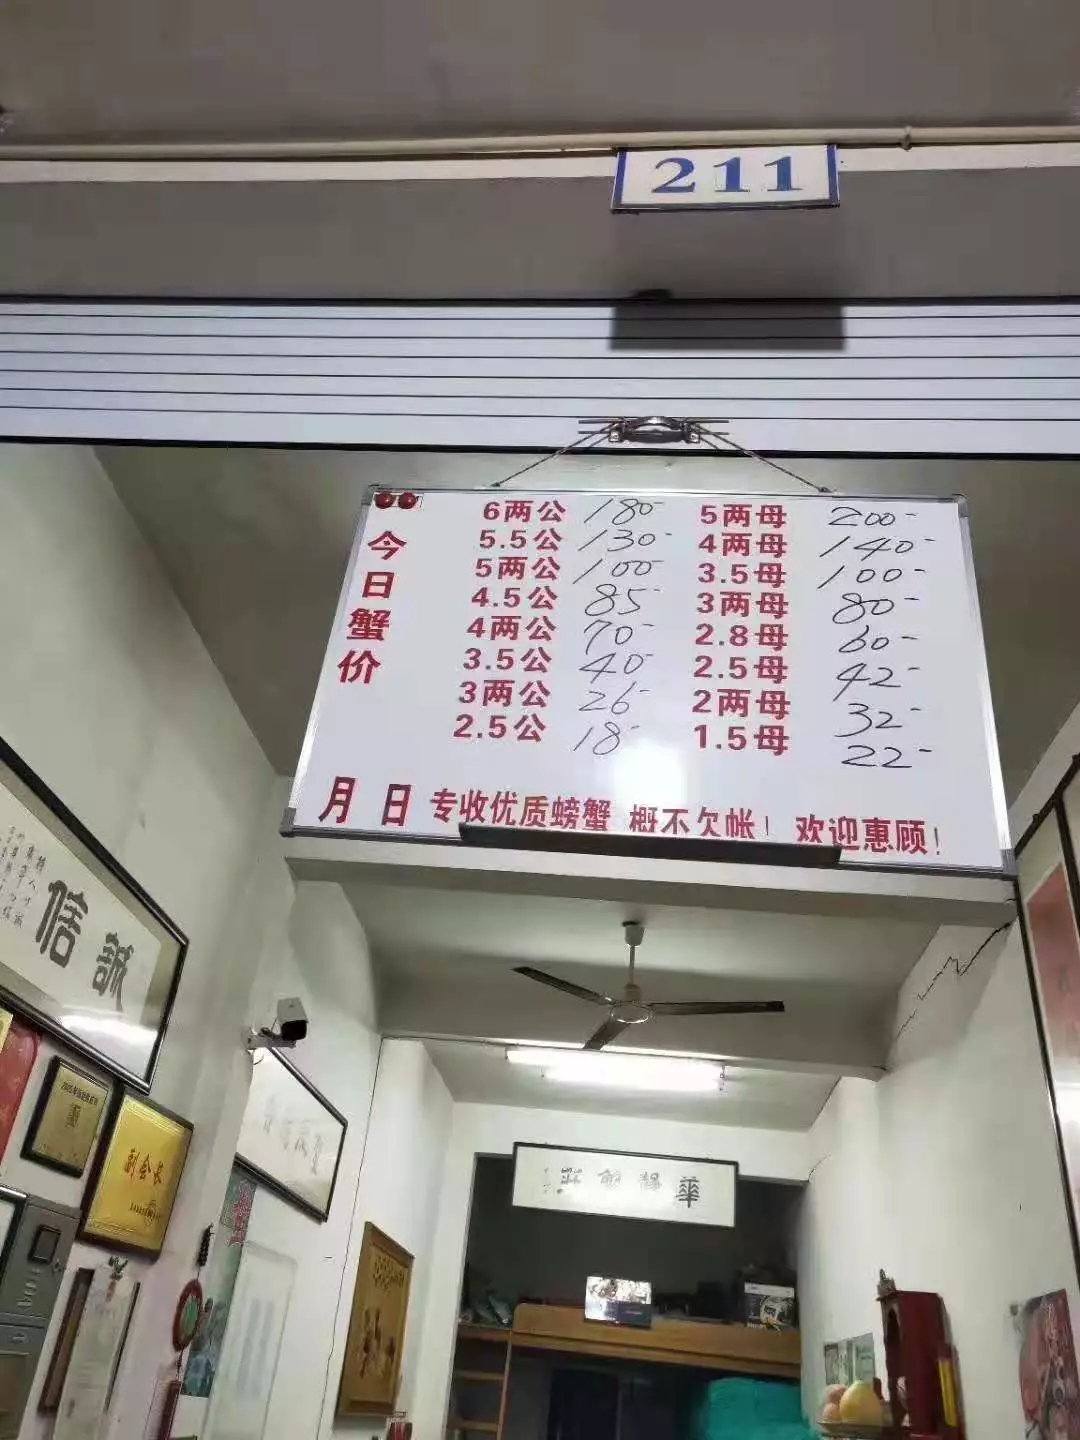 211
今日蟹价
6两公 180- 5两母 200-
5.5公 130- 4两母 140-
5两公 100- 3.5母 100-
4.5公 85- 3两母 80-
4两公 70- 2.8母 60-
3.5公 40- 2.5母 42-
3两公 26- 2两母 32-
2.5公 18- 1.5母 22-
月 日 专收优质螃蟹 概不欠帐！ 欢迎惠顾！
誠信
副会长
華